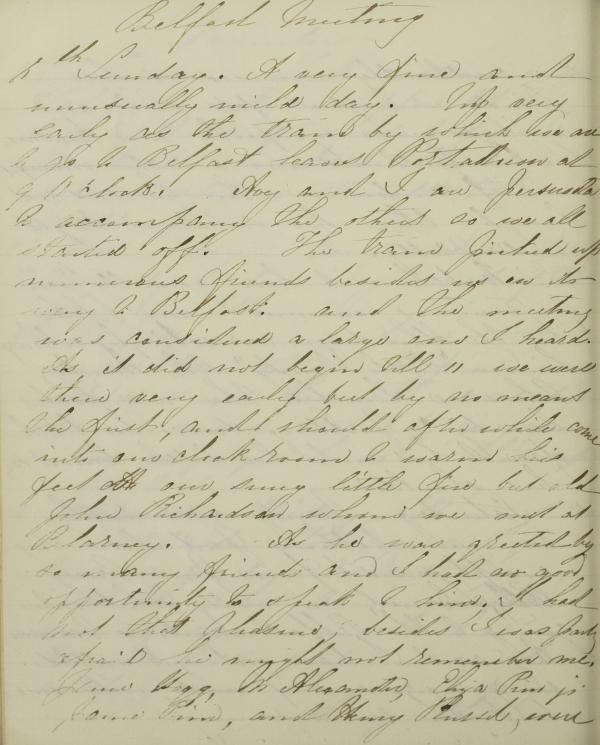 Belfast Meeting
th Sunday. A very fine and
unusually mild day. Up very
early as the train by which we are
to go to Belfast leaves Portadown at
9 o'clock. and I are persuaded
to accompany the others so we all
started off. The train picked up
numerous friends besides us on its
way to Belfast. and the meeting
was considered a large one I heard.
As it did not begin till 11 we were
there very early but by no means
the first, and should after while come
into our cloak room to warm his
feet At our snug little fire but old
John Richardson whom we met at
Blarney. As he was greeted by
so many friends and I had no good
opportunity to speak to him. I had
not that pleasure; besides I was
afraid he might not remember me.
Jane Hogg, Alexander, Eliza Pim jr
Jane Pim, and Henry Russel, were